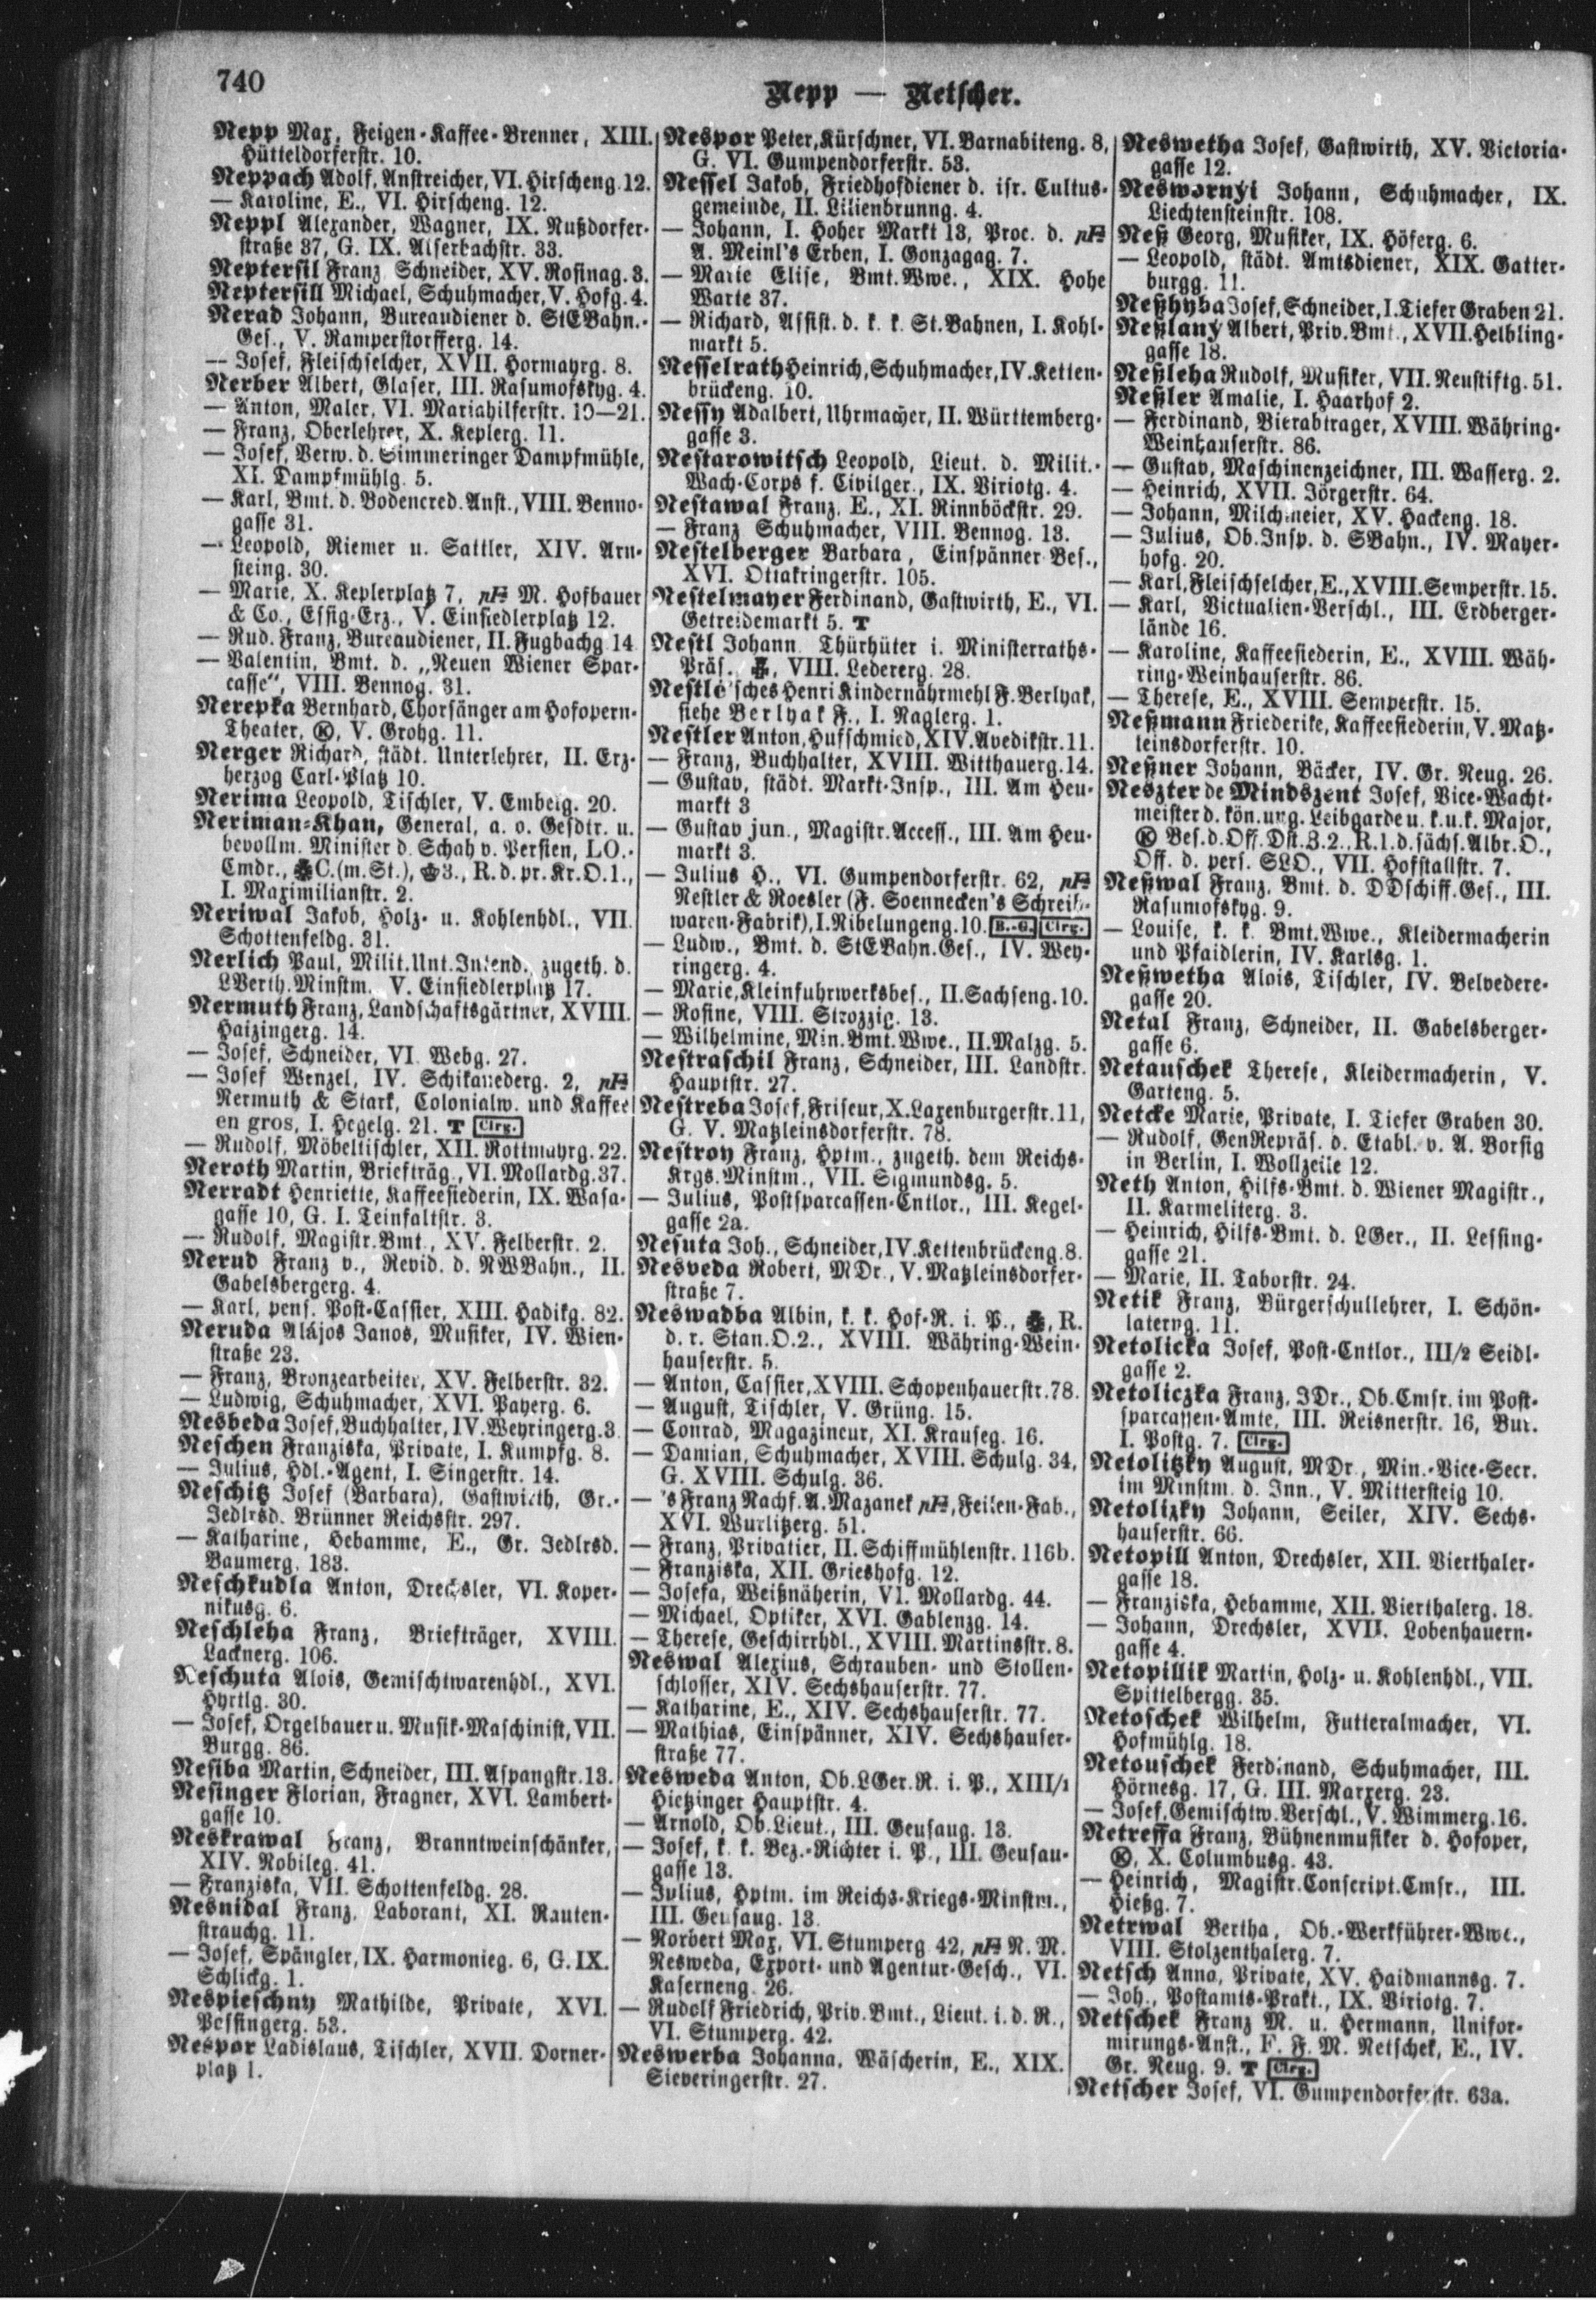 740
Nepp — Netscher.
Nepp Max, Feigen-Kaffee-Brenner, XIII.
Hütteldorferstr. 10.
Neppach Adolf, Anstreicher, VI. Hirscheng. 12.
— Karoline, E., VI. Hirscheng. 12.
Neppl Alexander, Wagner, IX. Nußdorfer-
straße 37, G. IX. Alserbachstr. 33.
Neptersil Franz Schneider, XV. Rosinag. 3.
Neptersill Michael, Schuhmacher, V. Hofg. 4.
Nerad Johann, Bureaudiener d. StEBahn.-
Ges., V. Ramperstorfferg. 14.
— Josef, Fleischselcher, XVII. Hormayrg. 8.
Nerber Albert, Glaser, III. Rasumofskyg. 4.
— Anton, Maler, VI. Mariahilferstr. 19—21.
— Franz, Oberlehrer, X. Keplerg. 11.
— Josef, Verw. d. Simmeringer Dampfmühle,
XI. Dampfmühlg. 5.
— Karl, Bmt. d. Bodencred. Anst., VIII. Benno-
gasse 31.
— Leopold, Riemer u. Sattler, XIV. Arn-
steing. 30.
— Marie, X. Keplerplatz 7, pFa M. Hofbauer
& Co., Essig-Erz., V. Einsiedlerplatz 12.
— Rud. Franz, Bureaudiener, II. Fugbachg 14
— Valentin, Bmt. d. „Neuen Wiener Spar-
casse“, VIII. Bennog. 31.
Nerepka Bernhard, Chorsänger am Hofopern-
Theater, Ⓚ, V. Grohg. 11.
Nerger Richard, städt. Unterlehrer, II. Erz-
herzog Carl-Platz 10.
Nerima Leopold, Tischler, V. Embelg. 20.
Neriman-Khan, General, a. o. Gesdtr. u.
bevollm. Minister d. Schah v. Persien, LO.-
Cmdr., C. (m. St.), 3., R. d. pr. Kr. O. 1.,
I. Maximilianstr. 2.
Neriwal Jakob, Holz- u. Kohlenhdl., VII.
Schottenfeldg. 31.
Nerlich Paul, Milit. Unt. Intend. zugeth. d.
LVerth. Minstm. V. Einsiedlerplatz 17.
Nermuth Franz, Landschaftsgärtner, XVIII.
Haizingerg. 14.
— Josef, Schneider, VI. Webg. 27.
— Josef Wenzel, IV. Schikanederg. 2, pFa
Nermuth & Stark, Colonialw. und Kaffee
en gros, I. Hegelg. 21. T Clrg.
— Rudolf, Möbeltischler, XII. Rottmayrg. 22.
Neroth Martin, Briefträg., VI. Mollardg. 37.
Nerradt Henriette, Kaffeesiederin, IX. Wasa-
gasse 10, G. I. Teinfaltstr. 3.
— Rudolf, Magistr. Bmt., XV. Felberstr. 2.
Nerud Franz v., Revid. d. NWBahn., II.
Gabelsbergerg. 4.
— Karl, pens. Post-Cassier, XIII. Hadikg. 82.
Neruda Alájos Janos, Musiker, IV. Wien-
straße 23.
— Franz, Bronzearbeiter, XV. Felberstr. 32.
— Ludwig, Schuhmacher, XVI. Payerg. 6.
Nesbeda Josef, Buchhalter, IV. Weyringerg. 3
Neschen Franziska, Private, I. Kumpfg. 8.
— Julius, Hdl.-Agent, I. Singerstr. 14.
Neschitz Josef (Barbara), Gastwirth, Gr.-
Jedlrsd. Brünner Reichsstr. 297.
— Katharine, Hebamme, E., Gr. Jedlrsd.
Baumerg. 183.
Neschkudla Anton, Drechsler, VI. Koper-
nikusg. 6.
Neschleha Franz, Briefträger, XVIII.
Lacknerg. 106.
Neschuta Alois, Gemischtwarenhdl., XVI.
Hyrtlg. 30.
— Josef, Orgelbauer u. Musik-Maschinist, VII.
Burgg. 86.
Nesiba Martin, Schneider, III. Aspangstr. 13.
Nesinger Florian, Fragner, XVI. Lambert-
gasse 10.
Neskrawal Franz, Branntweinschänker,
XIV. Robileg. 41.
— Franziska, VII. Schottenfeldg. 28.
Nesnidal Franz, Laborant, XI. Rauten-
strauchg. 11.
— Josef, Spängler, IX. Harmonieg. 6, G. IX.
Schlickg. 1.
Nespieschny Mathilde, Private, XVI.
Pössingerg. 53.
Nespor Ladislaus, Tischler, XVII. Dorner-
platz 1.
Nespor Peter, Kürschner, VI. Barnabiteng. 8,
G. VI. Gumpendorferstr. 53.
Nessel Jakob, Friedhofdiener d. isr. Cultus-
gemeinde, II. Lilienbrunng. 4.
— Johann, I. Hoher Markt 13, Proc. d. pFa
A. Meinl's Erben, I. Gonzagag. 7.
— Marie Elise, Bmt. Wwe., XIX. Hohe
Warte 37.
— Richard, Assist. d. k. k. St. Bahnen, I. Kohl-
markt 5.
Nesselrath Heinrich, Schuhmacher, IV. Ketten-
brückeng. 10.
Nessy Adalbert, Uhrmacher, II. Württemberg-
gasse 3.
Nestarowitsch Leopold, Lieut. d. Milit.-
Wach-Corps f. Civilger., IX. Viriotg. 4.
Nestawal Franz, E., XI. Rinnböckstr. 29.
— Franz Schuhmacher, VIII. Bennog. 13.
Nestelberger Barbara, Einspänner Bes.,
XVI. Ottakringerstr. 105.
Nestelmayer Ferdinand, Gastwirth, E., VI.
Getreidemarkt 5. T
Nestl Johann Thürhüter i. Ministerraths-
Präs., VIII. Ledererg. 28.
Nestlé'sches Henri Kindernährmehl F. Berlyak,
siehe Berlyak F., I. Naglerg. 1.
Nestler Anton, Hufschmied, XIV. Avedikstr. 11.
— Franz, Buchhalter, XVIII. Witthauerg. 14.
— Gustav, städt. Markt-Insp., III. Am Heu-
markt 3
— Gustav jun., Magistr. Access., III. Am Heu-
markt 3.
— Julius H., VI. Gumpendorferstr. 62, pFa
Nestler & Roesler (F. Soennecken's Schreib-
waren-Fabrik), I. Nibelungeng. 10. B.-G. Clrg.
— Ludw., Bmt. d. StEBahn. Ges., IV. Wey-
ringerg. 4.
— Marie, Kleinfuhrwerksbes., II. Sachseng. 10.
— Rosine, VIII. Strozzig. 13.
— Wilhelmine, Min. Bmt. Wwe., II. Malzg. 5.
Nestraschil Franz, Schneider, III. Landstr.
Hauptstr. 27.
Nestreba Josef, Friseur, X. Laxenburgerstr. 11,
G. V. Matzleinsdorferstr. 78.
Nestroy Franz, Hptm., zugeth. dem Reichs-
Krgs. Minstm., VII. Sigmundsg. 5.
— Julius, Postsparcassen-Cntlor., III. Kegel-
gasse 2a.
Nesuta Joh., Schneider, IV. Kettenbrückeng. 8.
Nesveda Robert, MDr., V. Matzleinsdorfer-
straße 7.
Neswadba Albin, k. k. Hof-R. i. P., R.
d. r. Stan. O. 2., XVIII. Währing-Wein-
hauserstr. 5.
— Anton, Cassier, XVIII. Schopenhauerstr. 78.
— August, Tischler, V. Grüng. 15.
— Conrad, Magazineur, XI. Krauseg. 16.
— Damian, Schuhmacher, XVIII. Schulg. 34,
G. XVIII. Schulg. 36.
— 's Franz Nachf. A. Mazanek pFa, Feilen-Fab.,
XVI. Wurlitzerg. 51.
— Franz, Privatier, II. Schiffmühlenstr. 116b.
— Franziska, XII. Grieshofg. 12.
— Josefa, Weißnäherin, VI. Mollardg. 44.
— Michael, Optiker, XVI. Gablenzg. 14.
— Therese, Geschirrhdl., XVIII. Martinsstr. 8.
Neswal Alexius, Schrauben- und Stollen-
schlosser, XIV. Sechshauserstr. 77.
— Katharine, E., XIV. Sechshauserstr. 77.
— Mathias, Einspänner, XIV. Sechshauser-
straße 77.
Nesweda Anton, Ob. LGer. R. i. P., XIII/1
Hietzinger Hauptstr. 4.
— Arnold, Ob. Lieut., III. Geusaug. 13.
— Josef, k. k. Bez.-Richter i. P., III. Geusau-
gasse 13.
— Julius, Hptm. im Reichs-Kriegs-Minstm.,
III. Geusaug. 13.
— Norbert Max, VI. Stumperg 42, pFa N. M.
Nesweda, Export- und Agentur-Gesch., VI.
Kaserneng. 26.
— Rudolf Friedrich, Priv. Bmt., Lieut. i. d. R.,
VI. Stumperg. 42.
Neswerba Johanna, Wäscherin, E., XIX.
Sieveringerstr. 27.
Neswetha Josef, Gastwirth, XV. Victoria-
gasse 12.
Neswornýi Johann, Schuhmacher, IX.
Liechtensteinstr. 108.
Neß Georg, Musiker, IX. Höferg. 6.
— Leopold, städt. Amtsdiener, XIX. Gatter-
burgg. 11.
Neßhyba Josef, Schneider, I. Tiefer Graben 21.
Neßlaný Albert, Priv. Bmt., XVII. Helbling-
gasse 18.
Neßleha Rudolf, Musiker, VII. Neustiftg. 51.
Neßler Amalie, I. Haarhof 2.
— Ferdinand, Bierabtrager, XVIII. Währing-
Weinhauserstr. 86.
— Gustav, Maschinenzeichner, III. Wasserg. 2.
— Heinrich, XVII. Jörgerstr. 64.
— Johann, Milchmeier, XV. Hackeng. 18.
— Julius, Ob. Insp. d. SBahn., IV. Mayer-
hofg. 20.
— Karl, Fleischselcher, E., XVIII. Semperstr. 15.
— Karl, Victualien-Verschl., III. Erdberger-
lände 16.
— Karoline, Kaffeesiederin, E., XVIII. Wäh-
ring-Weinhauserstr. 86.
— Therese, E., XVIII. Semperstr. 15.
Neßmann Friederike, Kaffeesiederin, V. Matz-
leinsdorferstr. 10.
Neßner Johann, Bäcker, IV. Gr. Neug. 26.
Neszter de Mindszent Josef, Vice-Wacht-
meister d. kön. ung. Leibgarde u. k. u. k. Major,
Ⓚ Bes. d. Off. Dst. Z. 2., R. 1. d. sächs. Albr. O.,
Off. d. pers. SLO., VII. Hofstallstr. 7.
Neßwal Franz, Bmt. d. DDschiff. Ges., III.
Rasumofskyg. 9.
— Louise, k. k. Bmt. Wwe., Kleidermacherin
und Pfaidlerin, IV. Karlsg. 1.
Neßwetha Alois, Tischler, IV. Belvedere-
gasse 20.
Netal Franz, Schneider, II. Gabelsberger-
gasse 6.
Netauschek Therese, Kleidermacherin, V.
Garteng. 5.
Netcke Marie, Private, I. Tiefer Graben 30.
— Rudolf, GenRepräs. d. Etabl. v. A. Borsig
in Berlin, I. Wollzeile 12.
Neth Anton, Hilfs-Bmt. d. Wiener Magistr.,
II. Karmeliterg. 3.
— Heinrich, Hilfs-Bmt. d. LGer., II. Lessing-
gasse 21.
— Marie, II. Taborstr. 24.
Netik Franz, Bürgerschullehrer, I. Schön-
laterng. 11.
Netolicka Josef, Post-Cntlor., III/2 Seidl-
gasse 2.
Netoliczka Franz, JDr., Ob. Cmsr. im Post-
sparcassen-Amte, III. Reisnerstr. 16, Bur.
I. Postg. 7. Clrg.
Netolitzky August, MDr., Min.-Vice-Secr.
im Minstm. d. Inn., V. Mittersteig 10.
Netolizky Johann, Seiler, XIV. Sechs-
hauserstr. 66.
Netopill Anton, Drechsler, XII. Vierthaler-
gasse 18.
— Franziska, Hebamme, XII. Vierthalerg. 18.
— Johann, Drechsler, XVII. Lobenhauern-
gasse 4.
Netopillik Martin, Holz- u. Kohlenhdl., VII.
Spittelbergg. 35.
Netoschek Wilhelm, Futteralmacher, VI.
Hofmühlg. 18.
Netouschek Ferdinand, Schuhmacher, III.
Hörnesg. 17, G. III. Marxerg. 23.
— Josef, Gemischtw. Verschl., V. Wimmerg. 16.
Netreffa Franz, Bühnenmusiker d. Hofoper,
Ⓚ, X. Columbusg. 43.
— Heinrich, Magistr. Conscript. Cmsr., III.
Hießg. 7.
Netrwal Bertha, Ob.-Werkführer-Wwe.,
VIII. Stolzenthalerg. 7.
Netsch Anna, Private, XV. Haidmannsg. 7.
— Joh., Postamts-Prakt., IX. Viriotg. 7.
Netschek Franz M. u. Hermann, Unifor-
mirungs-Anst., F. F. M. Netschek, E., IV.
Gr. Neug. 9. T Clrg.
Netscher Josef, VI. Gumpendorferstr. 63a.